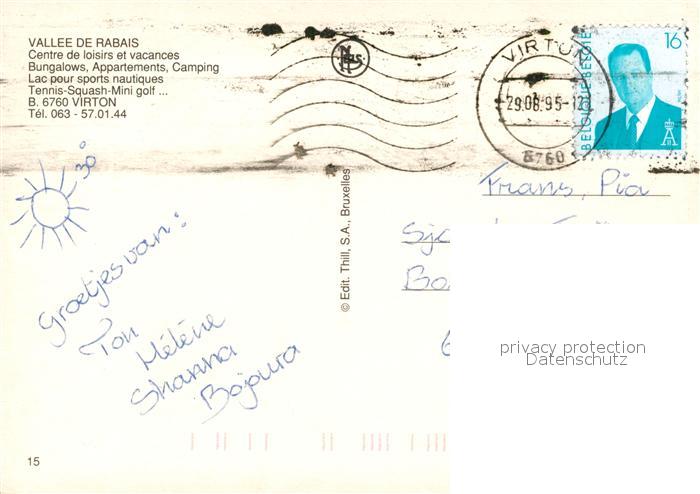 VALLEE DE RABAIS
Centre de loisirs et vacances
Bungalows, Appartements, Camping
Lac pour sports nautiques
Tennis-Squash-Mini golf ...
B. 6760 VIRTON
Tél. 063 - 57.01.44
VIRTON
29.06.95-12
6760
16
BELGIQUE-BELGIË
30°
Frans, Pia
Groetjes van:
Ton
Hélène
Shanna
Bojoura
© Edit. Thill, S.A., Bruxelles
privacy protection
Datenschutz
15